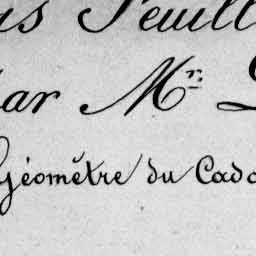 Feuill
par Mr.
Géomètre du Cada